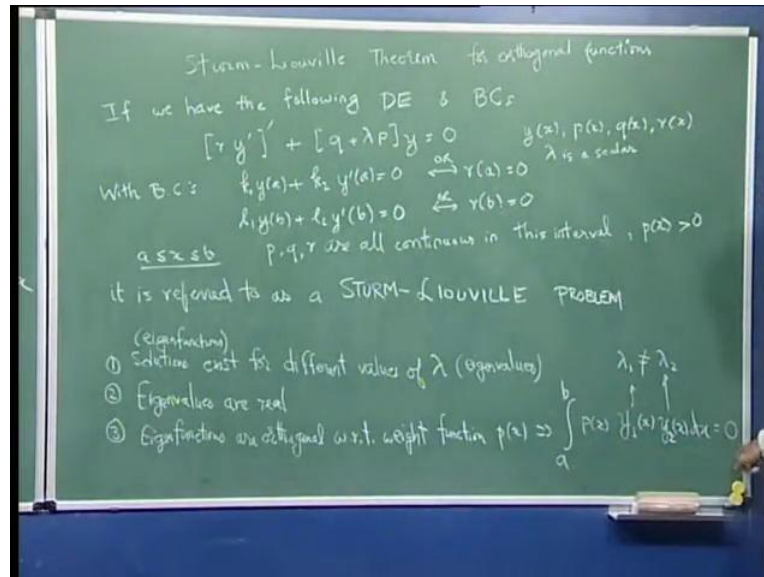 Sturm-Liouville Theorem for orthogonal functions
If we have the following DE & BCs
[r y']' + [q + λp]y = 0
y(x), p(x), q(x), r(x)
λ is a scalar
With B.C's k₁y(a) + k₂ y'(a) = 0 ⟺ or r(a) = 0
l₁y(b) + l₂ y'(b) = 0 ⟺ or r(b) = 0
a ≤ x ≤ b p, q, r are all continuous in this interval, p(x) > 0
it is referred to as a STURM-LIOUVILLE PROBLEM
(eigenfunctions)
① Solutions exist for different values of λ (eigenvalues) λ₁ ≠ λ₂
② Eigenvalues are real
③ Eigenfunctions are orthogonal w.r.t. weight function p(x) ⇒ ∫ₐᵇ p(x) y₁(x) y₂(x) dx = 0